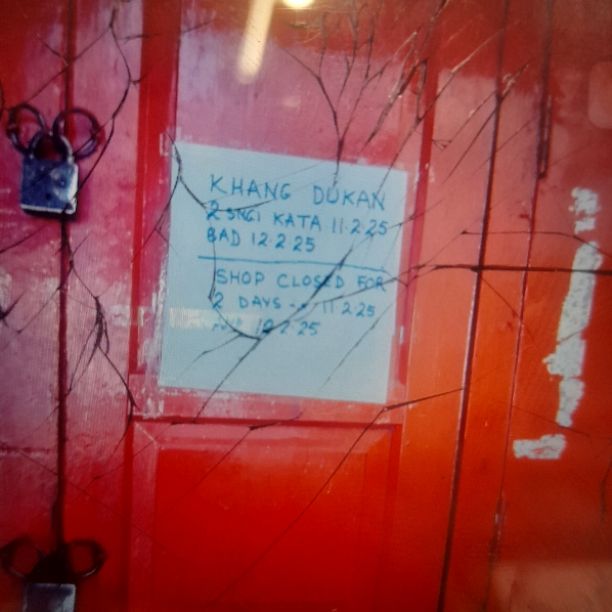 KHANG DUKAN
2 SNGI KATA 11.2.25
BAD 12.2.25
SHOP CLOSED FOR
2 DAYS -- 11 2.25
2.25